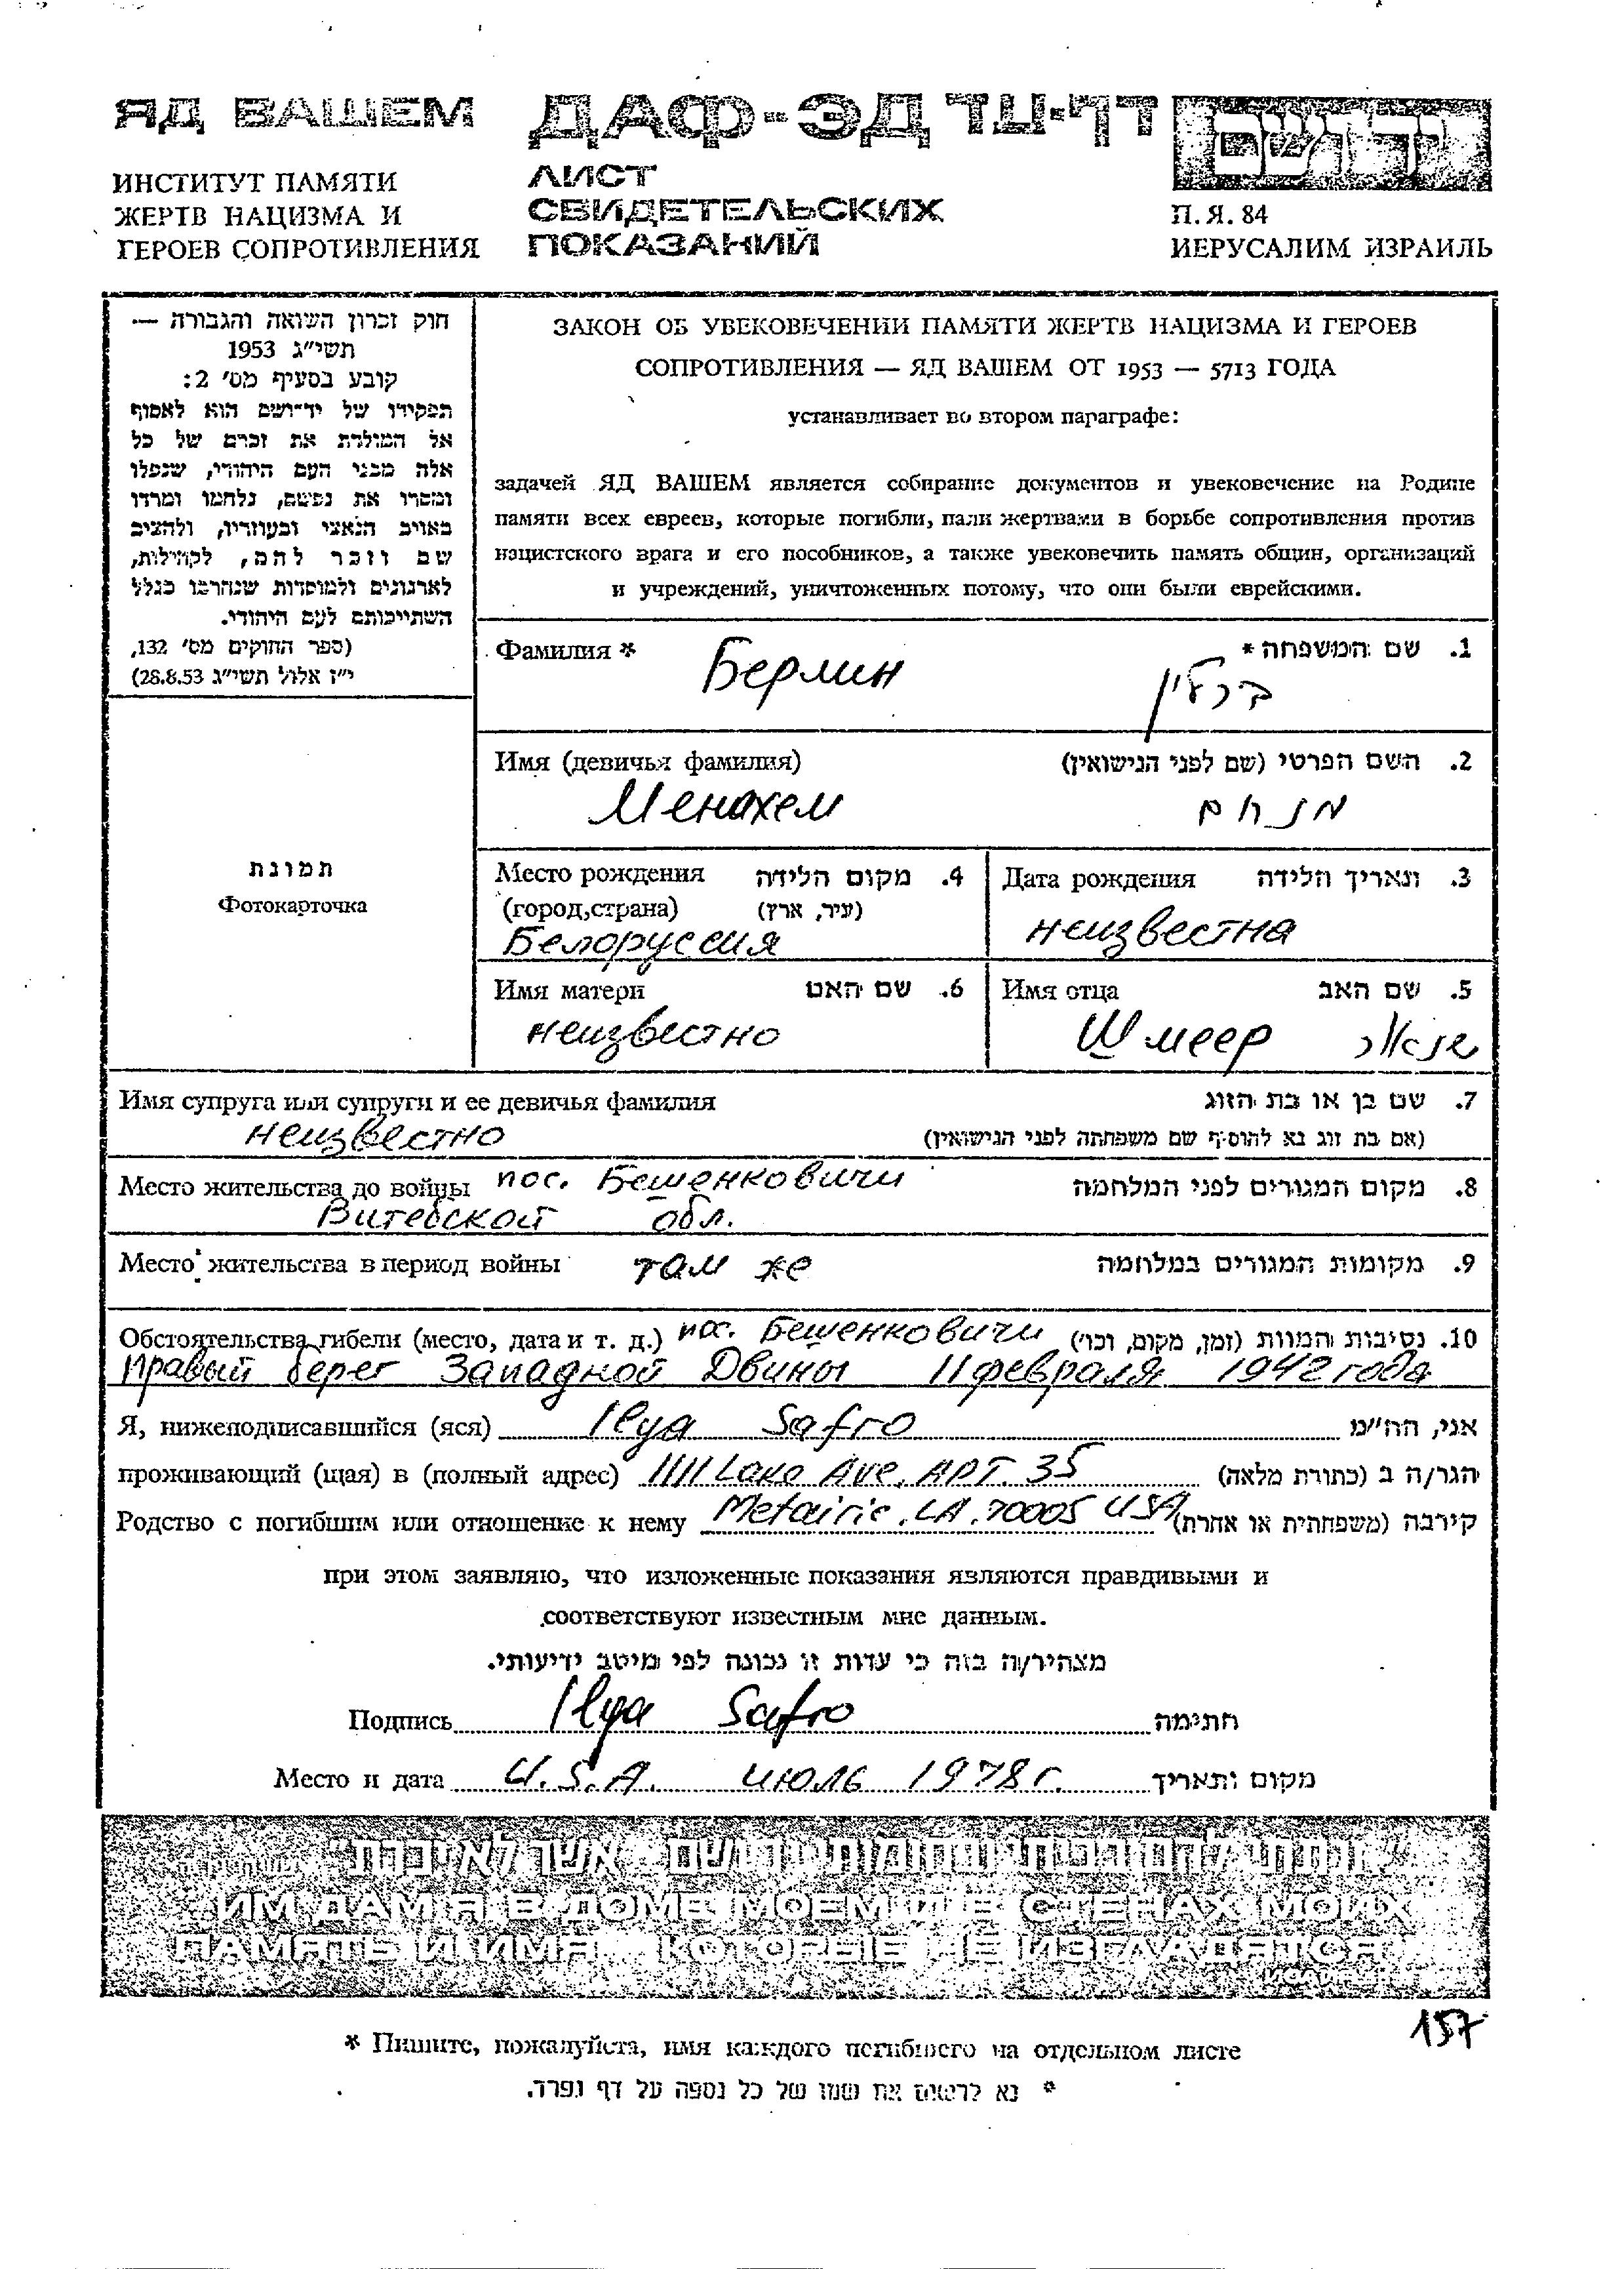 ЯД ВАШЕМ
ДАФ-ЭД דף-עד
יד ושם
ИНСТИТУТ ПАМЯТИ
ЖЕРТВ НАЦИЗМА И
ГЕРОЕВ СОПРОТИВЛЕНИЯ
ЛИСТ
СВИДЕТЕЛЬСКИХ
ПОКАЗАНИЙ
П. Я. 84
ИЕРУСАЛИМ ИЗРАИЛЬ
חוק זכרון השואה והגבורה —
תשי״ג 1953
קובע בסעיף מס׳ 2:
תפקידו של יד־ושם הוא לאסוף
אל המולדת את זכרם של כל
אלה מבני העם היהודי, שנפלו
ומסרו את נפשם, נלחמו ומרדו
באויב הנאצי ובעוזריו, ולהציב
שם וזכר להם, לקהילות,
לארגונים ולמוסדות שנחרבו בגלל
השתייכותם לעם היהודי.
(ספר החוקים מס׳ 132,
י״ז אלול תשי״ג 28.8.53)
ЗАКОН ОБ УВЕКОВЕЧЕНИИ ПАМЯТИ ЖЕРТВ НАЦИЗМА И ГЕРОЕВ
СОПРОТИВЛЕНИЯ — ЯД ВАШЕМ ОТ 1953 — 5713 ГОДА
устанавливает во втором параграфе:
задачей ЯД ВАШЕМ является собирание документов и увековечение на Родине
памяти всех евреев, которые погибли, пали жертвами в борьбе сопротивления против
нацистского врага и его пособников, а также увековечить память общин, организаций
и учреждений, уничтоженных потому, что они были еврейскими.
Фамилия * Берлин ברלין 1. שם המשפחה *
Имя (девичья фамилия) 2. השם הפרטי (שם לפני הנישואין)
Менахем מנחם
Место рождения 4. מקום הלידה
(город,страна) (עיר, ארץ)
Белоруссия
Дата рождения 3. תאריך הלידה
неизвестна
Имя матери 6. שם האם
неизвестно
Имя отца 5. שם האב
Шмеер
תמונת
Фотокарточка
Имя супруга или супруги и ее девичья фамилия 7. שם בן או בת הזוג
неизвестно (אם בת זוג נא להוסיף שם משפחתה לפני הנישואין)
Место жительства до войны пос. Бешенковичи 8. מקום המגורים לפני המלחמה
Витебской обл.
Место жительства в период войны там же 9. מקומות המגורים במלחמה
Обстоятельства гибели (место, дата и т. д.) пос. Бешенковичи 10. נסיבות המוות (זמן, מקום, וכו׳)
Правый берег Западной Двины 11 февраля 1942 года
Я, нижеподписавшийся (яся) Ilya Safro אני, הח״מ
проживающий (щая) в (полный адрес) 1111 Lake Ave, APT. 35 הגר/ה ב (כתובת מלאה)
Родство с погибшим или отношение к нему Metairie, LA. 70005 USA קירבה (משפחתית או אחרת)
при этом заявляю, что изложенные показания являются правдивыми и
соответствуют известным мне данным.
מצהיר/ה בזה כי עדות זו נכונה לפי מיטב ידיעותי.
Подпись Ilya Safro חתימה
Место и дата U.S.A. июль 1978 г. מקום ותאריך
״ונתתי להם בביתי ובחומותי יד ושם... אשר לא יכרת״
...ИМ ДАМ Я В ДОМЕ МОЕМ И В СТЕНАХ МОИХ
ПАМЯТЬ И ИМЯ... КОТОРЫЕ НЕ ИЗГЛАДЯТСЯ
157
* Пишите, пожалуйста, имя каждого погибшего на отдельном листе
* נא לרשום את שמו של כל נספה על דף נפרד.